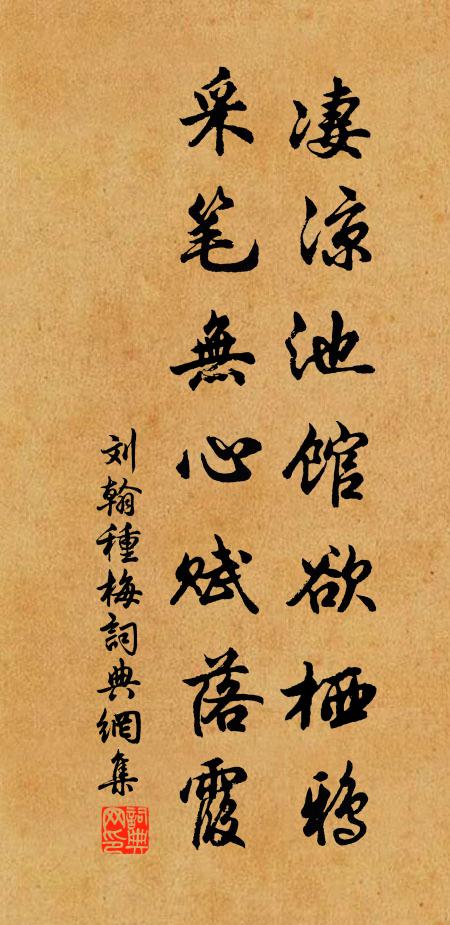 凄凉池馆欲栖鸦
采笔無心赋落霞
刘翰種梅詞典網集
詞典网印